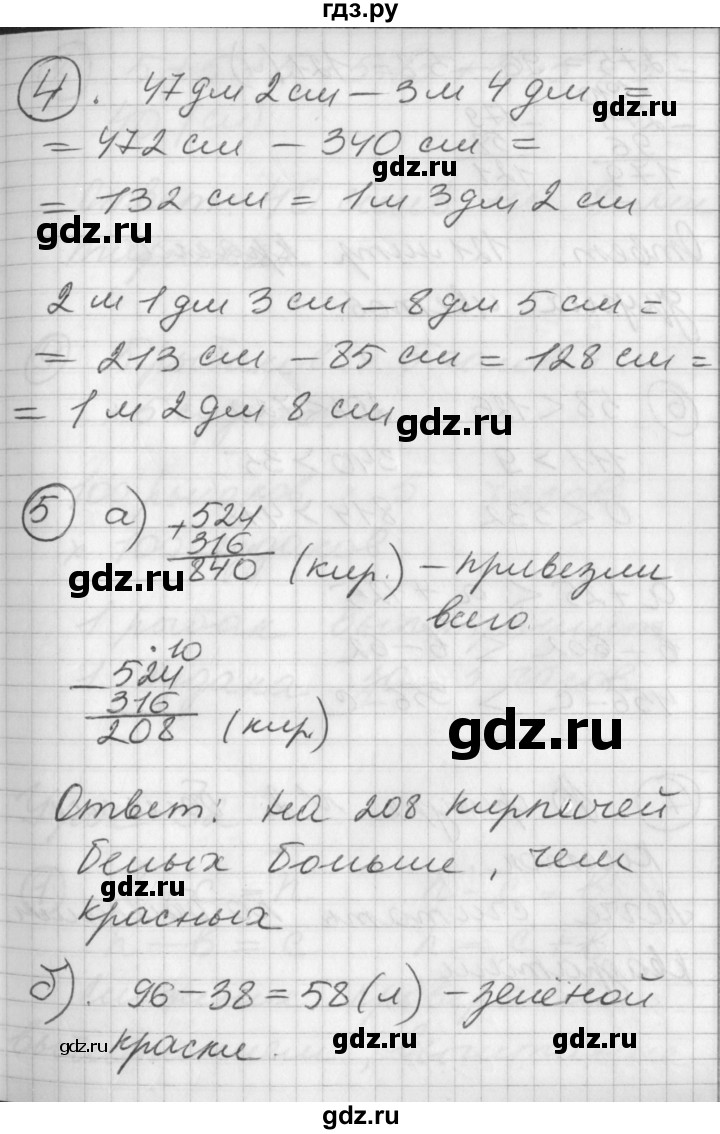 гдз.ру
4. 47 дм 2 см – 3 м 4 дм =
gdz.ru
= 472 см – 340 см =
gdz.ru
= 132 см = 1 м 3 дм 2 см
gdz.ru
2 м 1 дм 3 см – 8 дм 5 см =
= 213 см – 85 см = 128 см =
= 1 м 2 дм 8 см
gdz.ru
5 а) + 524
316
840 (кир.) – привезли
gdz.ru
всего.
· 10
– 524
316
208 (кир.)
gdz.ru
Ответ: на 208 кирпичей
белых больше, чем
gdz.ru
красных
б). 96 – 38 = 58 (л) – зелёной
gdz.ru краски. gdz.ru gdz.ru
gdz.ru